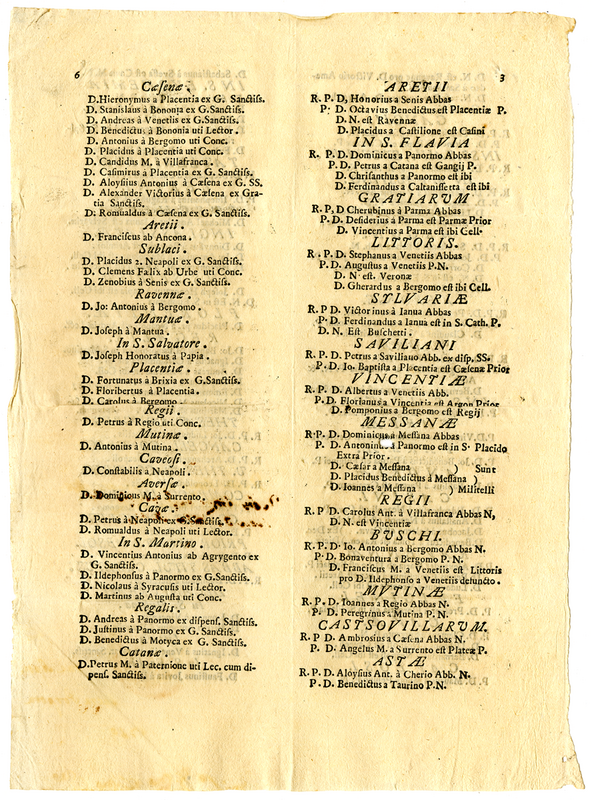 6
Cæsenæ.
D. Hieronymus à Placentia ex G. Sanctiss.
D. Stanislaus à Bononia ex G. Sanctiss.
D. Andreas à Venetiis ex G. Sanctiss.
D. Benedictus à Bononia uti Lector.
D. Antonius à Bergomo uti Conc.
D. Placidus à Placentia uti Conc.
D. Candidus M. à Villafranca.
D. Casimirus à Placentia ex G. Sanctiss.
D. Aloysius Antonius à Cæsena ex G. SS.
D. Alexander Victorius à Cæsena ex Gra-
tia Sanctiss.
D. Romualdus à Cæsena ex G. Sanctiss.
Aretii.
D. Franciscus ab Ancona.
Sublaci.
D. Placidus 2. Neapoli ex G. Sanctiss.
D. Clemens Fælix ab Urbe uti Conc.
D. Zenobius à Senis ex G. Sanctiss.
Ravennæ.
D. Jo: Antonius à Bergomo.
Mantuæ.
D. Joseph à Mantua.
In S. Salvatore.
D. Joseph Honoratus à Papia.
Placentiæ.
D. Fortunatus à Brixia ex G. Sanctiss.
D. Floribertus à Placentia.
D. Carolus à Bergomo
Regii.
D. Petrus à Regio uti Conc.
Mutinæ.
D. Antonius à Mutina.
Caveosi.
D. Constabilis à Neapoli.
Aversæ.
D. Dominicus M. à Surrento.
Cavæ.
D. Petrus à Neapoli ex G. Sanctiss.
D. Romualdus à Neapoli uti Lector.
In S. Martino.
D. Vincentius Antonius ab Agrygento ex
G. Sanctiss.
D. Ildephonsus à Panormo ex G. Sanctiss.
D. Nicolaus à Syracusis uti Lector.
D. Martinus ab Augusta uti Conc.
Regalis.
D. Andreas à Panormo ex dispens. Sanctiss.
D. Justinus à Panormo ex G. Sanctiss.
D. Benedictus à Motyca ex G. Sanctiss.
Catanæ.
D. Petrus M. à Paternione uti Lec. cum di-
pens. Sanctiss.
3
ARETII
R. P. D, Honorius à Senis Abbas
P. D. Octavius Benedictus est Placentiæ P.
D. N. est Ravennæ
D. Placidus a Castilione est Casini
IN S. FLAVIA
R. P. D. Dominicus a Panormo Abbas
P. D. Petrus a Catana est Gangij P.
D. Chrisanthus a Panormo est ibi
D. Ferdinandus a Caltanissetta est ibi
GRATIARVM
R. P. D Cherubinus à Parma Abbas
P. D. Desiderius à Parma est Parmæ Prior
D. Vincentius a Parma est ibi Cell.
LITTORIS.
R. P. D. Stephanus a Venetiis Abbas
P. D. Augustus a Venetiis P.N.
D. N. est Veronæ
D. Gherardus a Bergomo est ibi Cell.
SYLVARIÆ
R. P D. Victorinus à Ianua Abbas
P. D. Ferdinandus a Ianua est in S. Cath. P.
D. N. Est Buschetti.
SAVILIANI
R. P. D. Petrus a Saviliano Abb. ex disp. SS.
P. D. Io. Baptista a Placentia est Cæsenæ Prior
VINCENTIÆ
R. P. D. Albertus a Venetiis Abb.
P. D. Florianus a Vincentia est Argon Prior
D. Pomponius a Bergomo est Regij
MESSANÆ
R. P. D. Dominicus a Messana Abbas
P. D. Antoninus à Panormo est in S. Placido
Extra Prior.
D. Cæsar a Messana ) Sunt
D. Placidus Benedictus à Messana )
D. Ioannes a Messana ) Militelli
REGII
R. P D. Carolus Ant. à Villafranca Abbas N,
D. N. est Vincentiæ
BVSCHI.
R. P. D. Io. Antonius a Bergomo Abbas N.
P. D. Bonaventura a Bergomo P. N.
D. Franciscus M. a Venetiis est Littoris
pro D. Ildephonso a Venetiis defuncto.
MVTINÆ
R. P. D. Ioannes a Regio Abbas N.
P. D. Peregrinus a Mutina P. N.
CASTSOVILLARVM.
R. P D. Ambrosius a Cæsena Abbas N.
P. D. Angelus M. a Surrento est Plateæ P.
ASTÆ
R. P. D. Aloysius Ant. à Cherio Abb. N.
P. D. Benedictus a Taurino P.N.